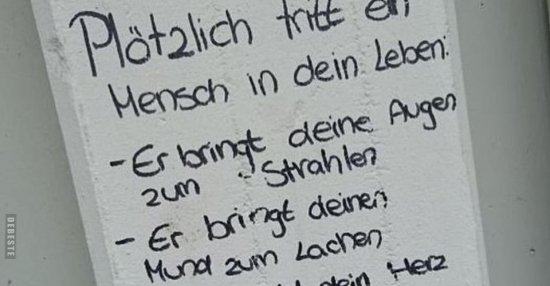 Plötzlich tritt ein
Mensch in dein Leben:
- Er bringt deine Augen
zum Strahlen
- Er bringt deinen
Mund zum Lachen
dein Herz
DEBESTE